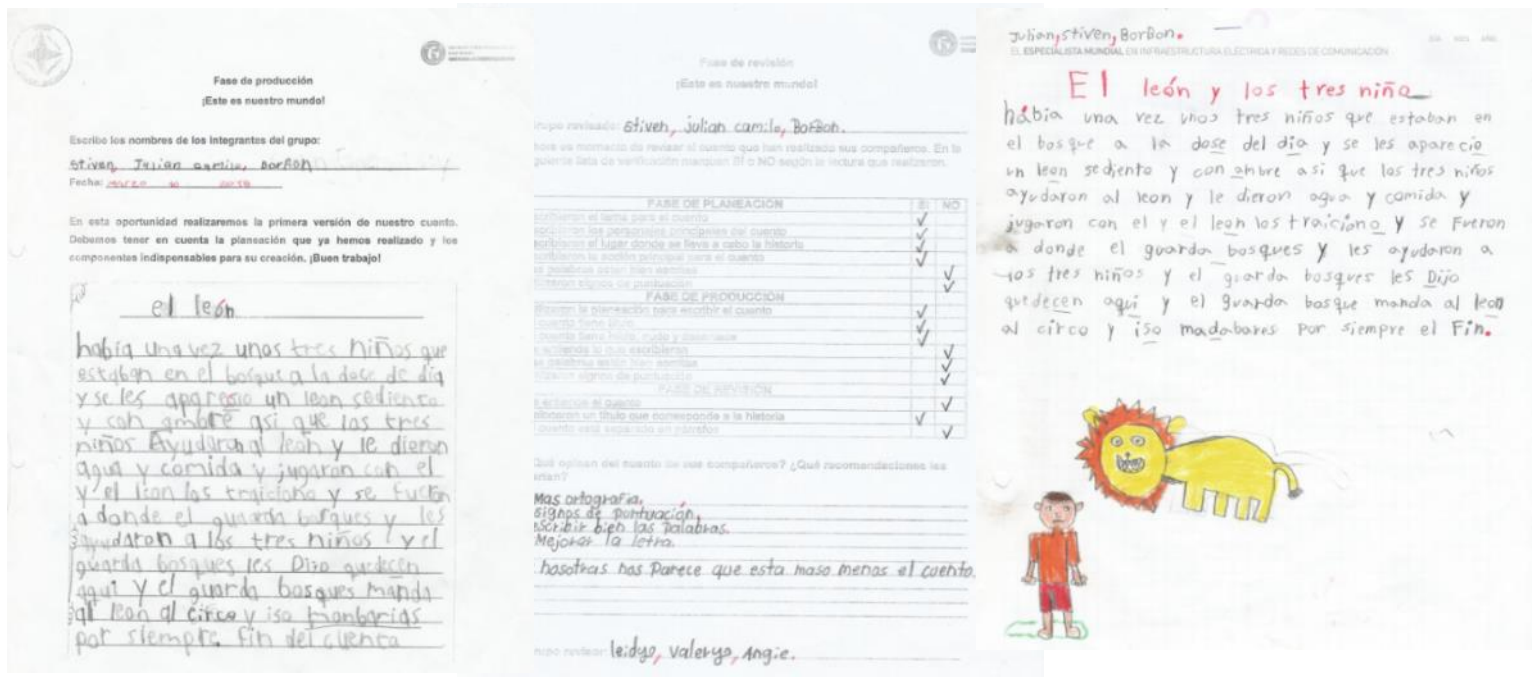 Fase de producción
¡Este es nuestro mundo!
Escribo los nombres de los integrantes del grupo:
Stiven, Julian camilo, BorBon
Fecha: marzo
En esta oportunidad realizaremos la primera versión de nuestro cuento.
Debemos tener en cuenta la planeación que ya hemos realizado y los
componentes indispensables para su creación. ¡Buen trabajo!
el león
había una vez unos tres niños que
estaban en el bosque a la dose de dia
y se les aparesio un leon sediento
y con ambre asi que los tres
niños Ayudaron al león y le dieron
agua y comida y jugaron con el
y el lion los traiciono y se fueron
a donde el guarda bosques y les
ayudaron a los tres niños y el
guarda bosques les Dijo quedecen
aqui y el guarda bosques manda
al leon al circo y iso
por siempre. fin del cuento
Fase de revisión
¡Este es nuestro mundo!
grupo revisado: Stiven, julian camilo, BorBon.
hora es momento de revisar el cuento que han realizado sus compañeros. En la
guiente lista de verificación marquen SÍ o NO según la lectura que realizaron.
FASE DE PLANEACIÓN SI NO
scribieron el tema para el cuento
scribieron los personajes principales del cuento
scribieron el lugar donde se lleva a cabo la historia
scribieron la acción principal para el cuento
s palabras están bien escritas
tilizaron signos de puntuación
FASE DE PRODUCCIÓN
tilizaron la planeación para escribir el cuento
cuento tiene título
cuento tiene inicio, nudo y desenlace
e entiende lo que escribieron
s palabras están bien escritas
tilizaron signos de puntuación
FASE DE REVISIÓN
e entiende el cuento
olocaron un título que corresponde a la historia
cuento está separado en párrafos
Qué opinan del cuento de sus compañeros? ¿Qué recomendaciones les
arían?
Mas ortografía.
signos de pontuación,
escribir bien las Palabras.
Mejorar la letra.
hosotras nos Parece que esta maso menos el cuento.
rupo revisor: leidys, Valerys, Angie.
Julian, stiven, BorBon.
EL ESPECIALISTA MUNDIAL EN INFRAESTRUCTURA ELÉCTRICA Y REDES DE COMUNICACIÓN
DÍA MES AÑO
El león y los tres niño
había una vez unos tres niños que estaban en
el bosque a la dose del dia y se les aparecio
un leon sediento y con ambre asi que los tres niños
ayudaron al leon y le dieron agua y comida y
jugaron con el y el leon los traiciono y se Fueron
a donde el guarda bosques y les ayudaron a
los tres niños y el guarda bosques les Dijo
quedecen aqui y el guarda bosque manda al leon
al circo y iso madabares por siempre el Fin.